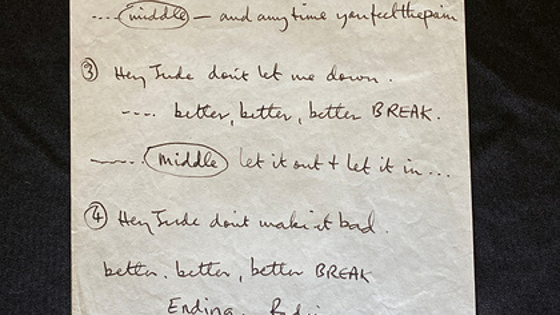 .... middle — and any time you feel the pain
③ Hey Jude don't let me down.
---- better, better, better BREAK.
middle let it out + let it in...
④ Hey Jude don't make it bad.
better. better, better BREAK
Ending.